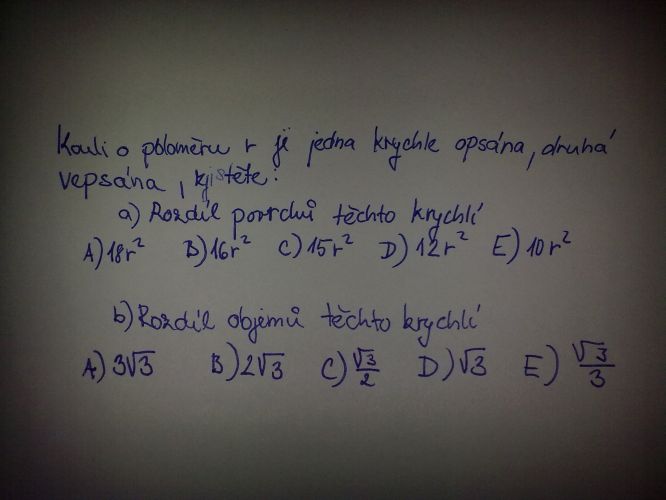 Kouli o poloměru r je jedna krychle opsána, druhá
vepsána, zjistěte:
a) Rozdíl povrchů těchto krychlí
A) 18r² B) 16r² C) 15r² D) 12r² E) 10r²
b) Rozdíl objemů těchto krychlí
A) 3√3 B) 2√3 C) √3/2 D) √3 E) √3/3